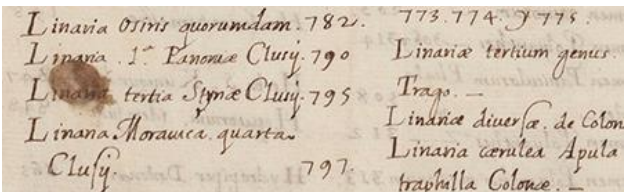 Linaria Osiris quorumdam. 782.
Linaria. 1ª Panoniæ Clusij. 790
Linaria tertia Styriæ Clusij. 795
Linaria Moravica. quarta.
Clusij. 797.
773. 774. y 775.
Linariæ tertium genus.
Trago. —
Linariæ diversæ. de Colon
Linaria cærulea Apula
traphilla Colonæ. —